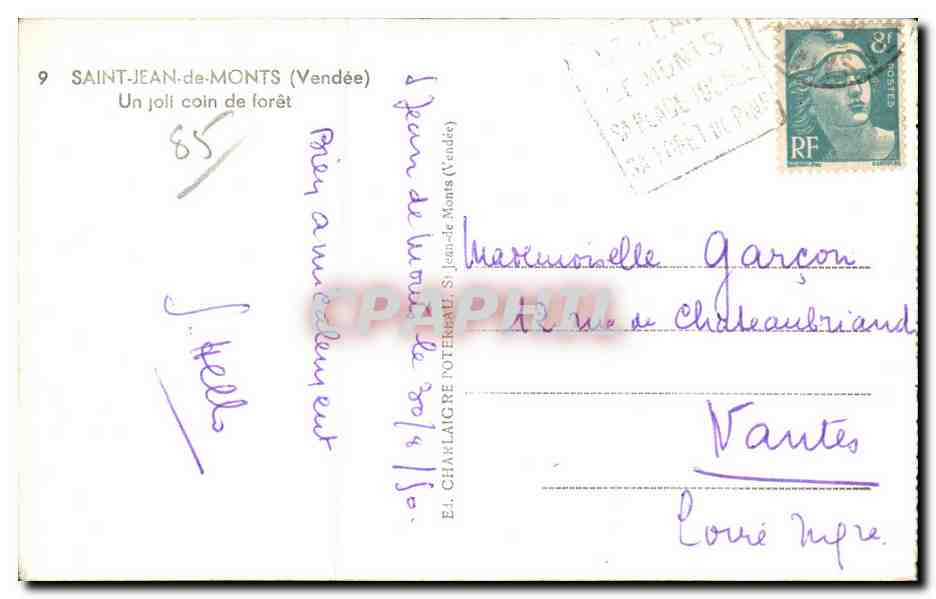 9 SAINT-JEAN-de-MONTS (Vendée)
Un joli coin de forêt
85
St Jean de Monts le 30/4/50.
Bien amicalement
Ed. CHARLAIGRE POTEREAU, St-Jean-de Monts (Vendée)
DE MONTS
SA PLAGE
SA FORET DE PINS
8F
POSTES
RF
Mademoiselle Garçon
12 rue de Chateaubriand
Nantes
Loire Infre
CPAPHIL